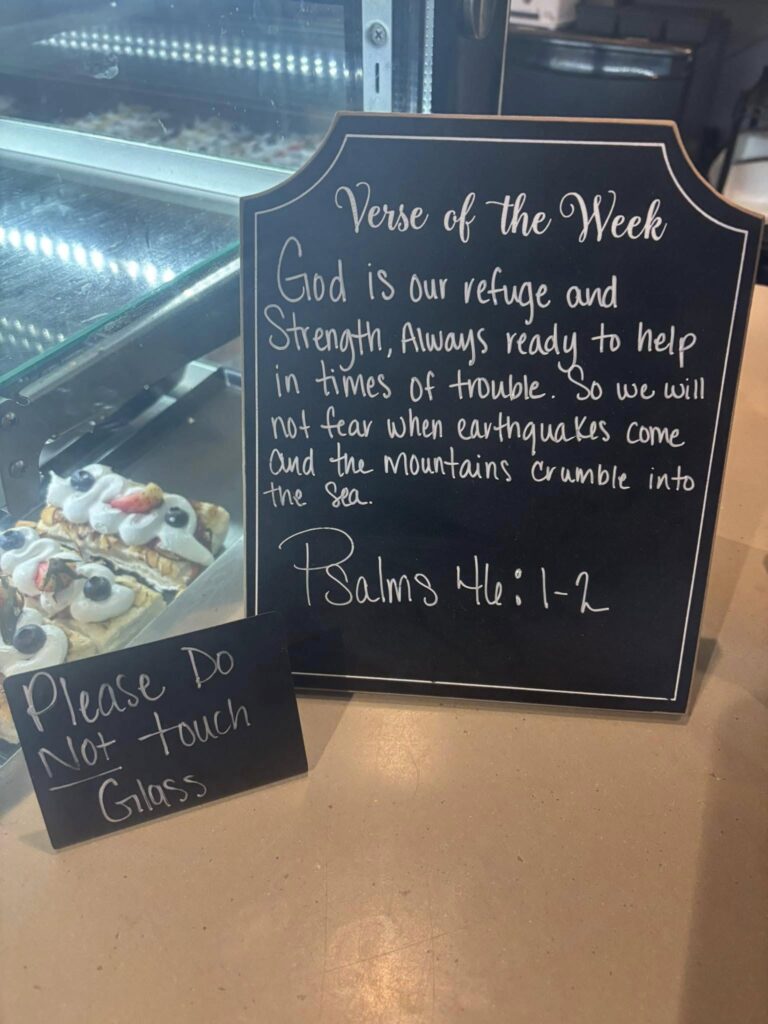 Verse of the Week
God is our refuge and
Strength, Always ready to help
in times of trouble. So we will
not fear when earthquakes come
and the mountains crumble into
the Sea.
Psalms 46:1-2
Please Do
Not touch
Glass